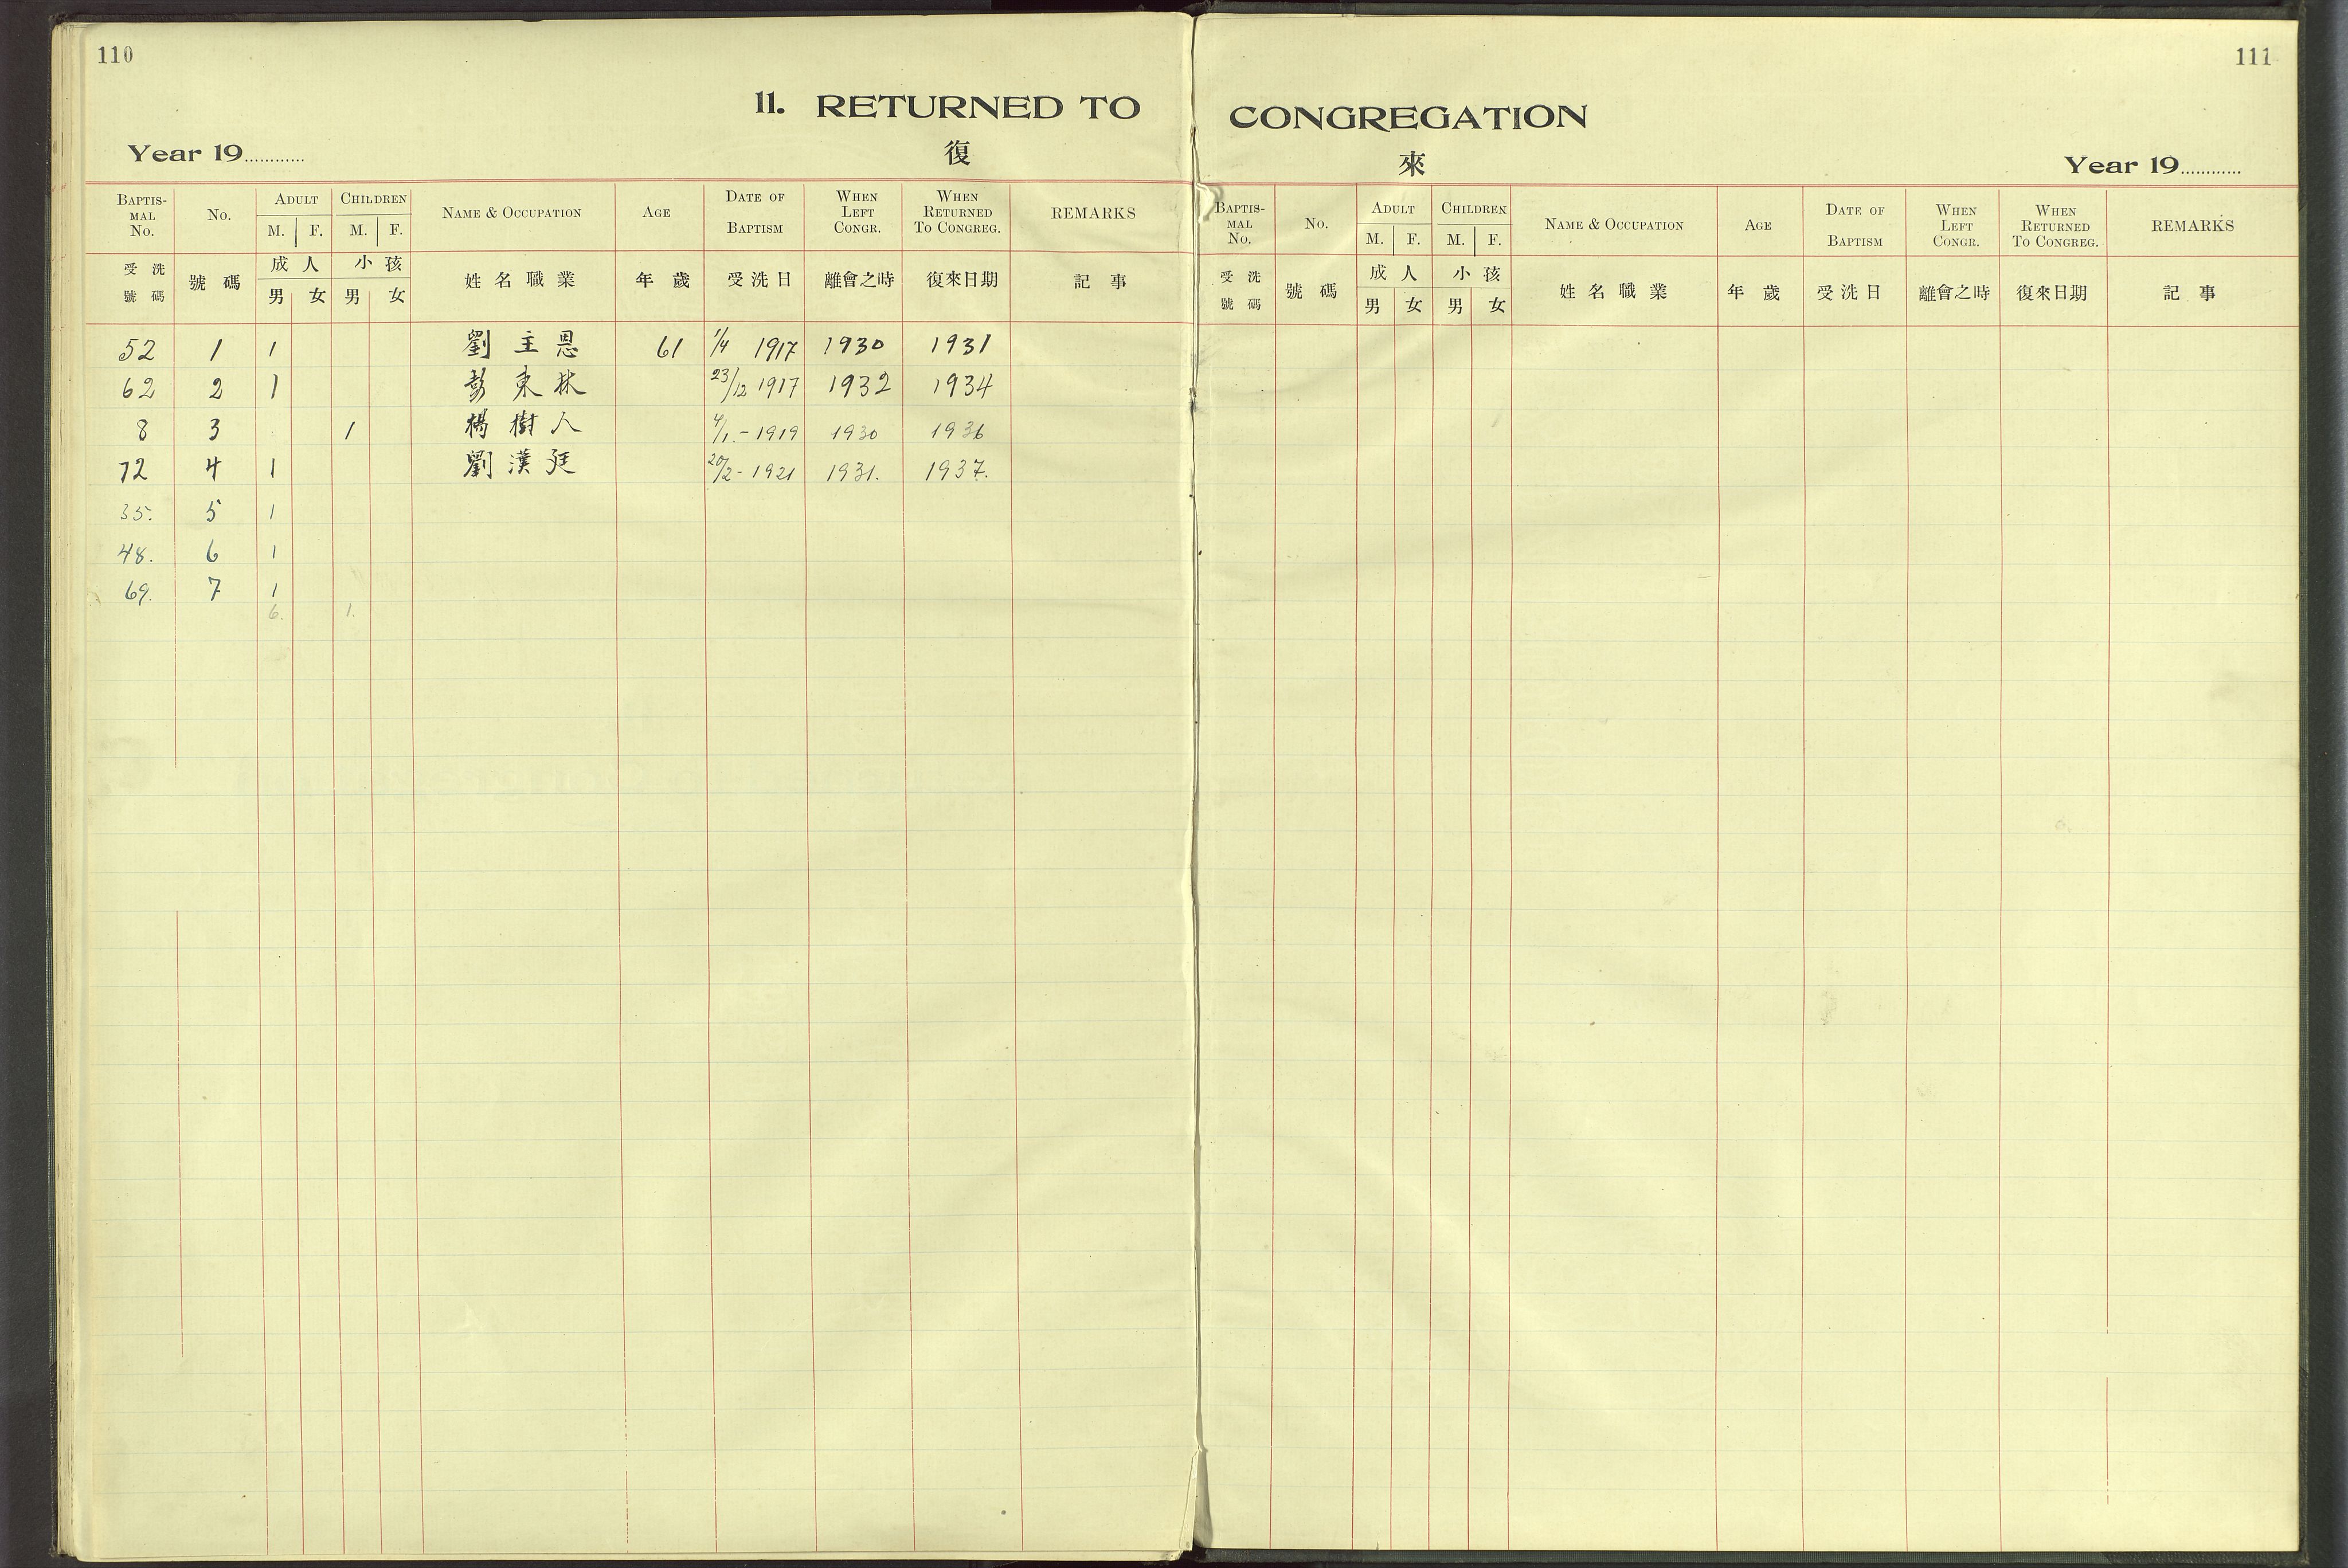 110
11. RETURNED TO
Year 19............
復
BAPTIS-MAL No. No. ADULT M. F. CHILDREN M. F. NAME & OCCUPATION AGE DATE OF BAPTISM WHEN LEFT CONGR. WHEN RETURNED TO CONGREG. REMARKS
受洗號碼 號碼 成人 男 女 小孩 男 女 姓名職業 年歲 受洗日 離會之時 復來日期 記事
52 1 1 劉主恩 61 1/4 1917 1930 1931
62 2 1 彭東林 23/12 1917 1932 1934
8 3 1 楊樹人 4/1.- 1919 1930 1936
72 4 1 劉漢廷 20/2- 1921 1931. 1937.
35. 5 1
48. 6 1
69. 7 1
6. 1.
111
CONGREGATION
來
Year 19............
BAPTIS-MAL No. No. ADULT M. F. CHILDREN M. F. NAME & OCCUPATION AGE DATE OF BAPTISM WHEN LEFT CONGR. WHEN RETURNED TO CONGREG. REMARKS
受洗號碼 號碼 成人 男 女 小孩 男 女 姓名職業 年歲 受洗日 離會之時 復來日期 記事